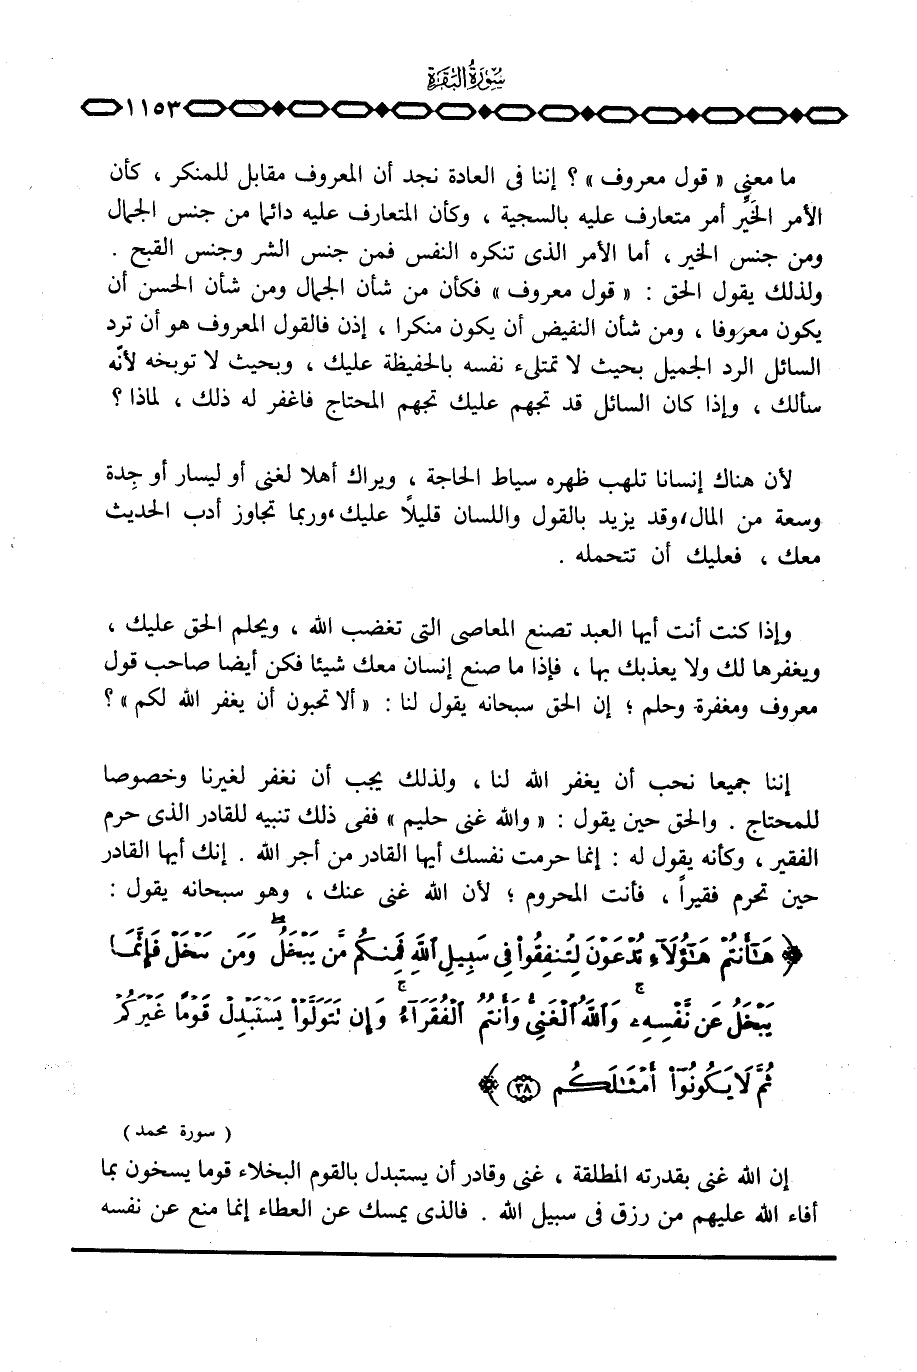 سورة البقرة
١١٥٣
ما معنى « قول معروف » ؟ إننا فى العادة نجد أن المعروف مقابل للمنكر ، كأن
الأمر الخَيِّر أمر متعارف عليه بالسجية ، وكأن المتعارف عليه دائما من جنس الجمال
ومن جنس الخير ، أما الأمر الذى تنكره النفس فمن جنس الشر وجنس القبح .
ولذلك يقول الحق : « قول معروف » فكأن من شأن الجمال ومن شأن الحسن أن
يكون معروفا ، ومن شأن النفيض أن يكون منكرا ، إذن فالقول المعروف هو أن ترد
السائل الرد الجميل بحيث لا تمتلىء نفسه بالحفيظة عليك ، وبحيث لا توبخه لأنّه
سألك ، وإذا كان السائل قد تجهم عليك تجهم المحتاج فاغفر له ذلك ، لماذا ؟
لأن هناك إنسانا تلهب ظهره سياط الحاجة ، ويراك أهلا لغنى أو ليسار أو جِدة
وسعة من المال ، وقد يزيد بالقول واللسان قليلاً عليك ، وربما تجاوز أدب الحديث
معك ، فعليك أن تتحمله .
وإذا كنت أنت أيها العبد تصنع المعاصى التى تغضب الله ، ويحلم الحق عليك ،
ويغفرها لك ولا يعذبك بها ، فإذا ما صنع إنسان معك شيئا فكن أيضا صاحب قول
معروف ومغفرة وحلم ؛ إن الحق سبحانه يقول لنا : « ألا تحبون أن يغفر الله لكم » ؟
إننا جميعا نحب أن يغفر الله لنا ، ولذلك يجب أن نغفر لغيرنا وخصوصا
للمحتاج . والحق حين يقول : « والله غنى حليم » ففى ذلك تنبيه للقادر الذى حرم
الفقير ، وكأنه يقول له : إنما حرمت نفسك أيها القادر من أجر الله . إنك أيها القادر
حين تحرم فقيراً ، فأنت المحروم ؛ لأن الله غنى عنك ، وهو سبحانه يقول :
﴿ هَٰٓأَنتُمْ هَٰٓؤُلَآءِ تُدْعَوْنَ لِتُنفِقُوا۟ فِى سَبِيلِ ٱللَّهِ فَمِنكُم مَّن يَبْخَلُ ۖ وَمَن يَبْخَلْ فَإِنَّمَا
يَبْخَلُ عَن نَّفْسِهِۦ ۚ وَٱللَّهُ ٱلْغَنِىُّ وَأَنتُمُ ٱلْفُقَرَآءُ ۚ وَإِن تَتَوَلَّوْا۟ يَسْتَبْدِلْ قَوْمًا غَيْرَكُمْ
ثُمَّ لَا يَكُونُوٓا۟ أَمْثَٰلَكُم ﴿٣٨﴾ ﴾
( سورة محمد )
إن الله غنى بقدرته المطلقة ، غنى وقادر أن يستبدل بالقوم البخلاء قوما يسخون بما
أفاء الله عليهم من رزق فى سبيل الله . فالذى يمسك عن العطاء إنما منع عن نفسه